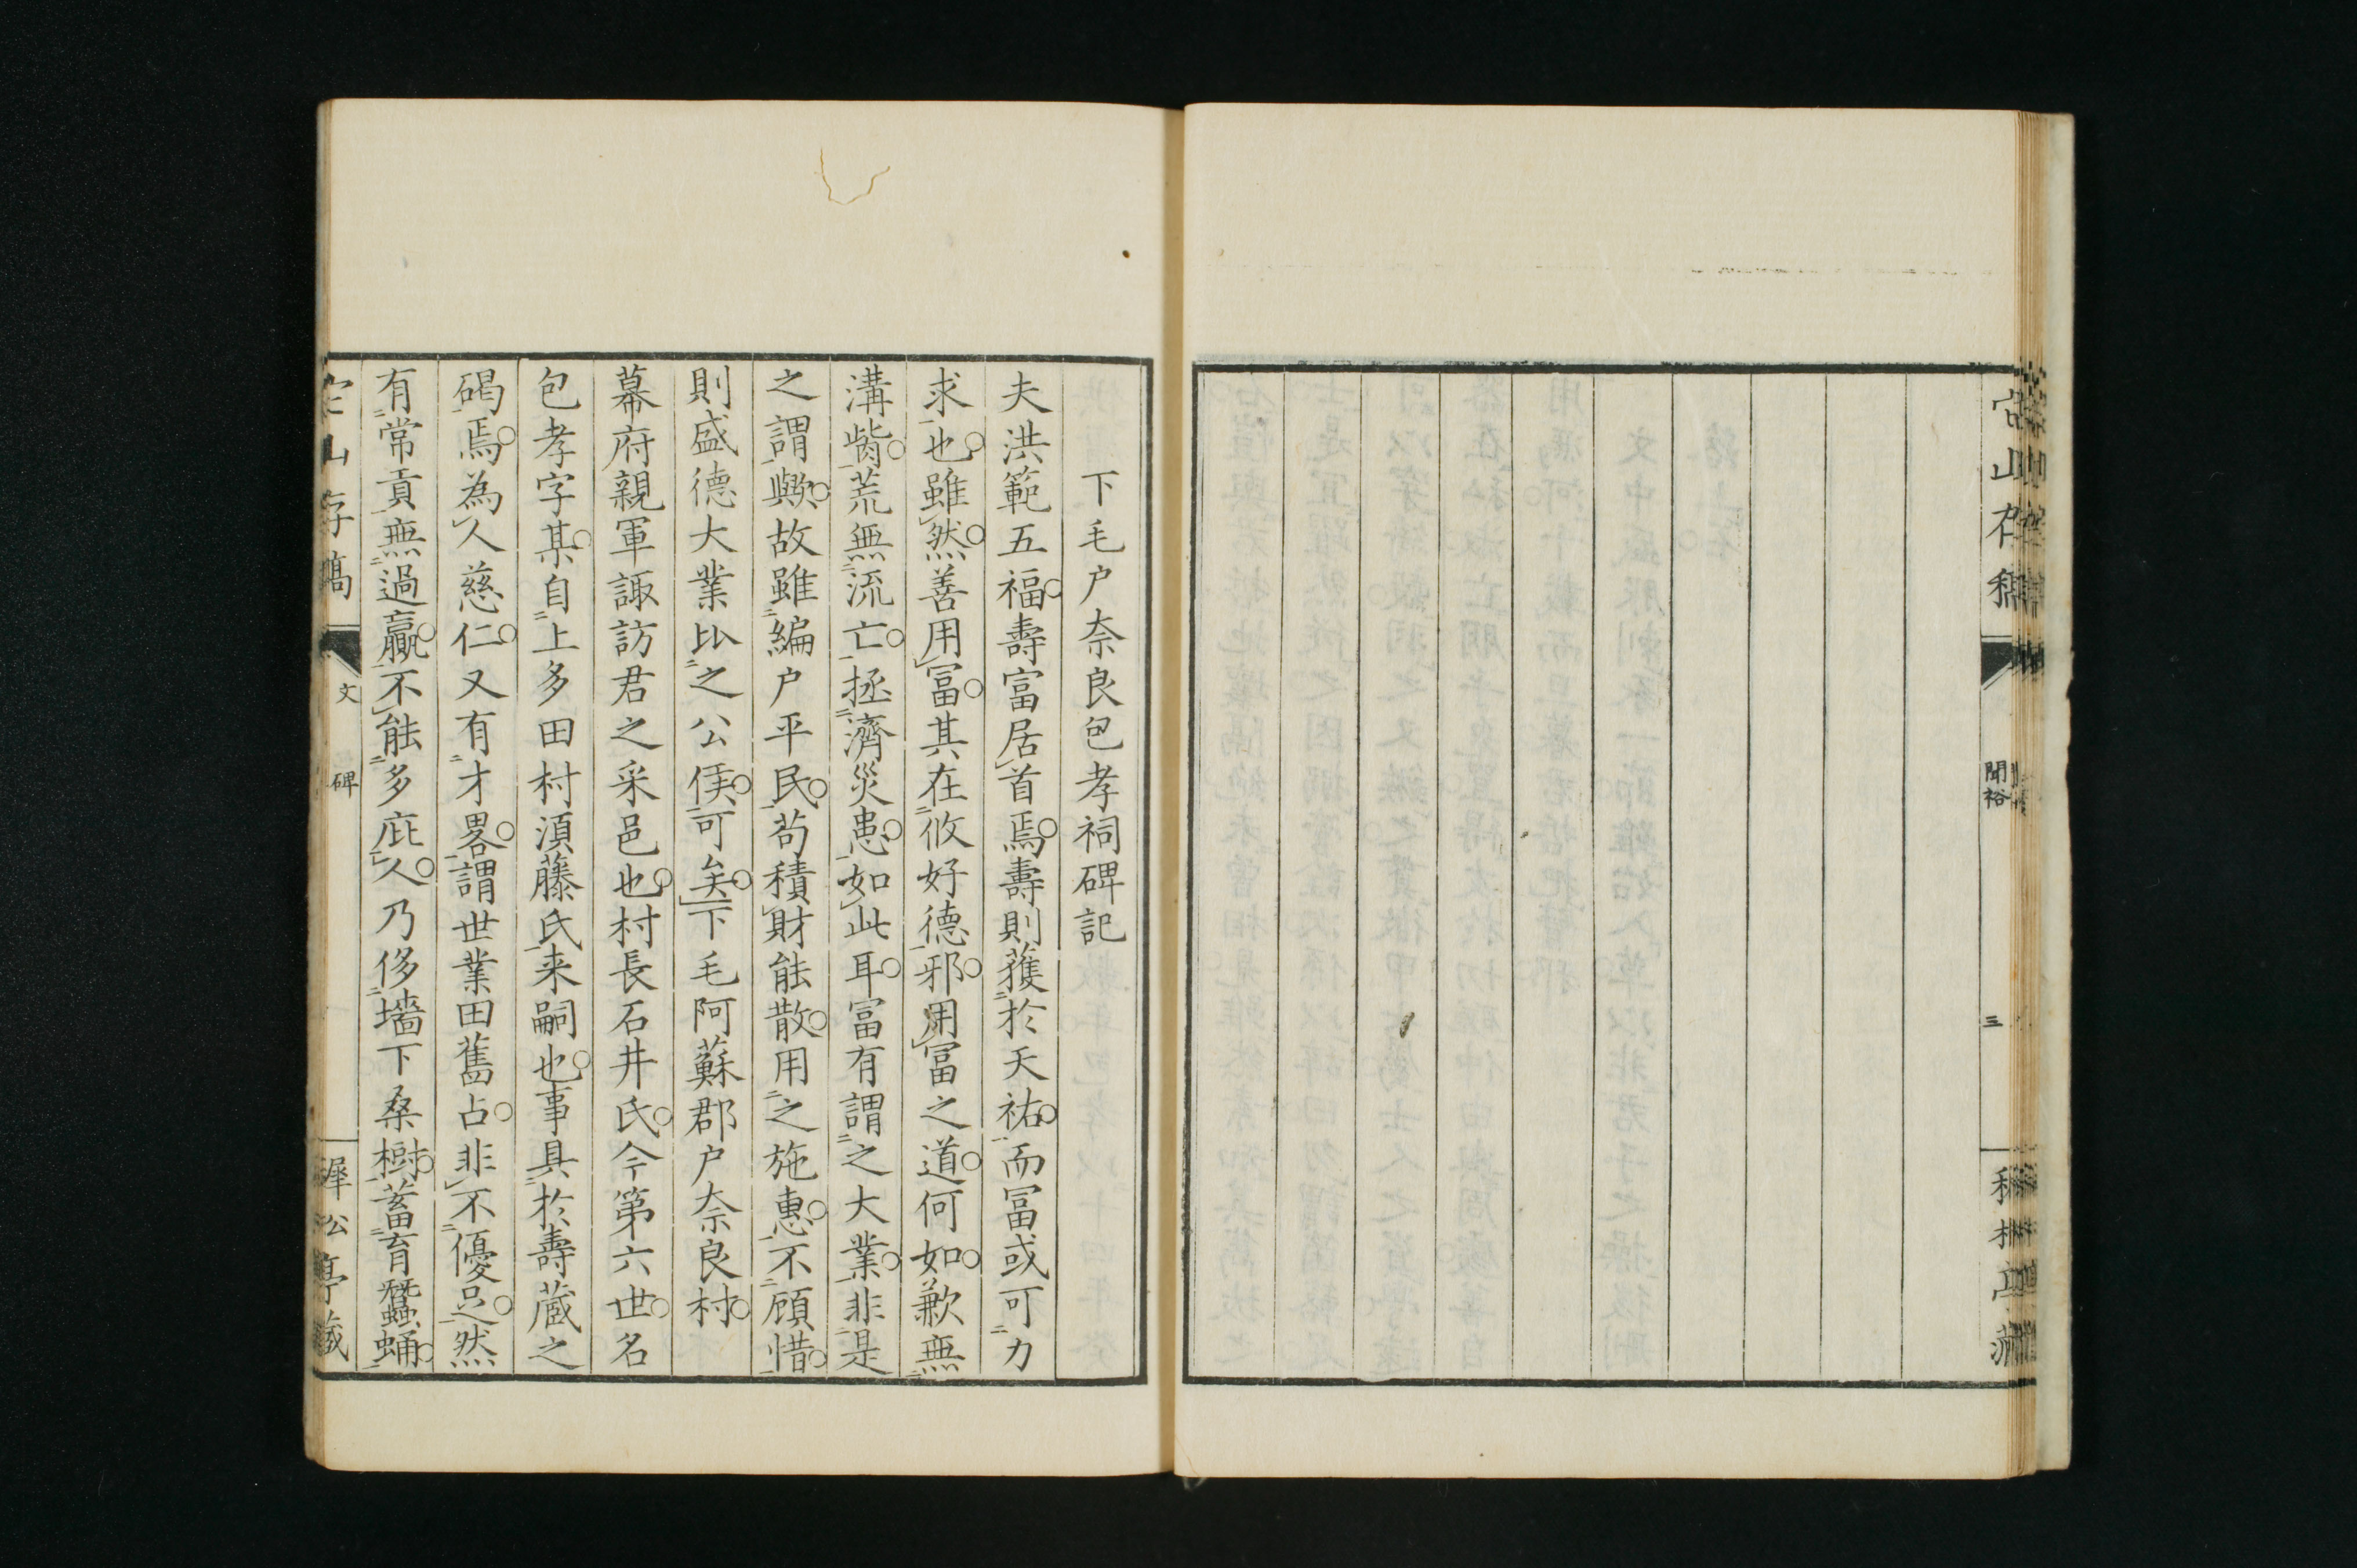 聞裕
三
下毛户奈良包孝祠碑記
夫洪範五福壽富居首焉壽則獲於天祐而冨或可力
求也雖然善用冨其在攸好德邪用冨之道何如歉無
溝胔荒無流亡拯濟災患如此耳冨有謂之大業非是
之謂與故雖編户平民苟積財能散用之施惠不顧惜
則盛德大業比之公侯可矣下毛阿蘇郡户奈良村
幕府親軍諏訪君之采邑也村長石井氏今第六世名
包孝字某自上多田村湏藤氏来嗣也事具於壽蔵之
碣焉為人慈仁又有才畧謂世業田舊占非不優足然
有常貢無過贏不能多庇人乃侈墻下桒樹蓄育蠶蛹
定山存稿
文
碑
犀松亭藏